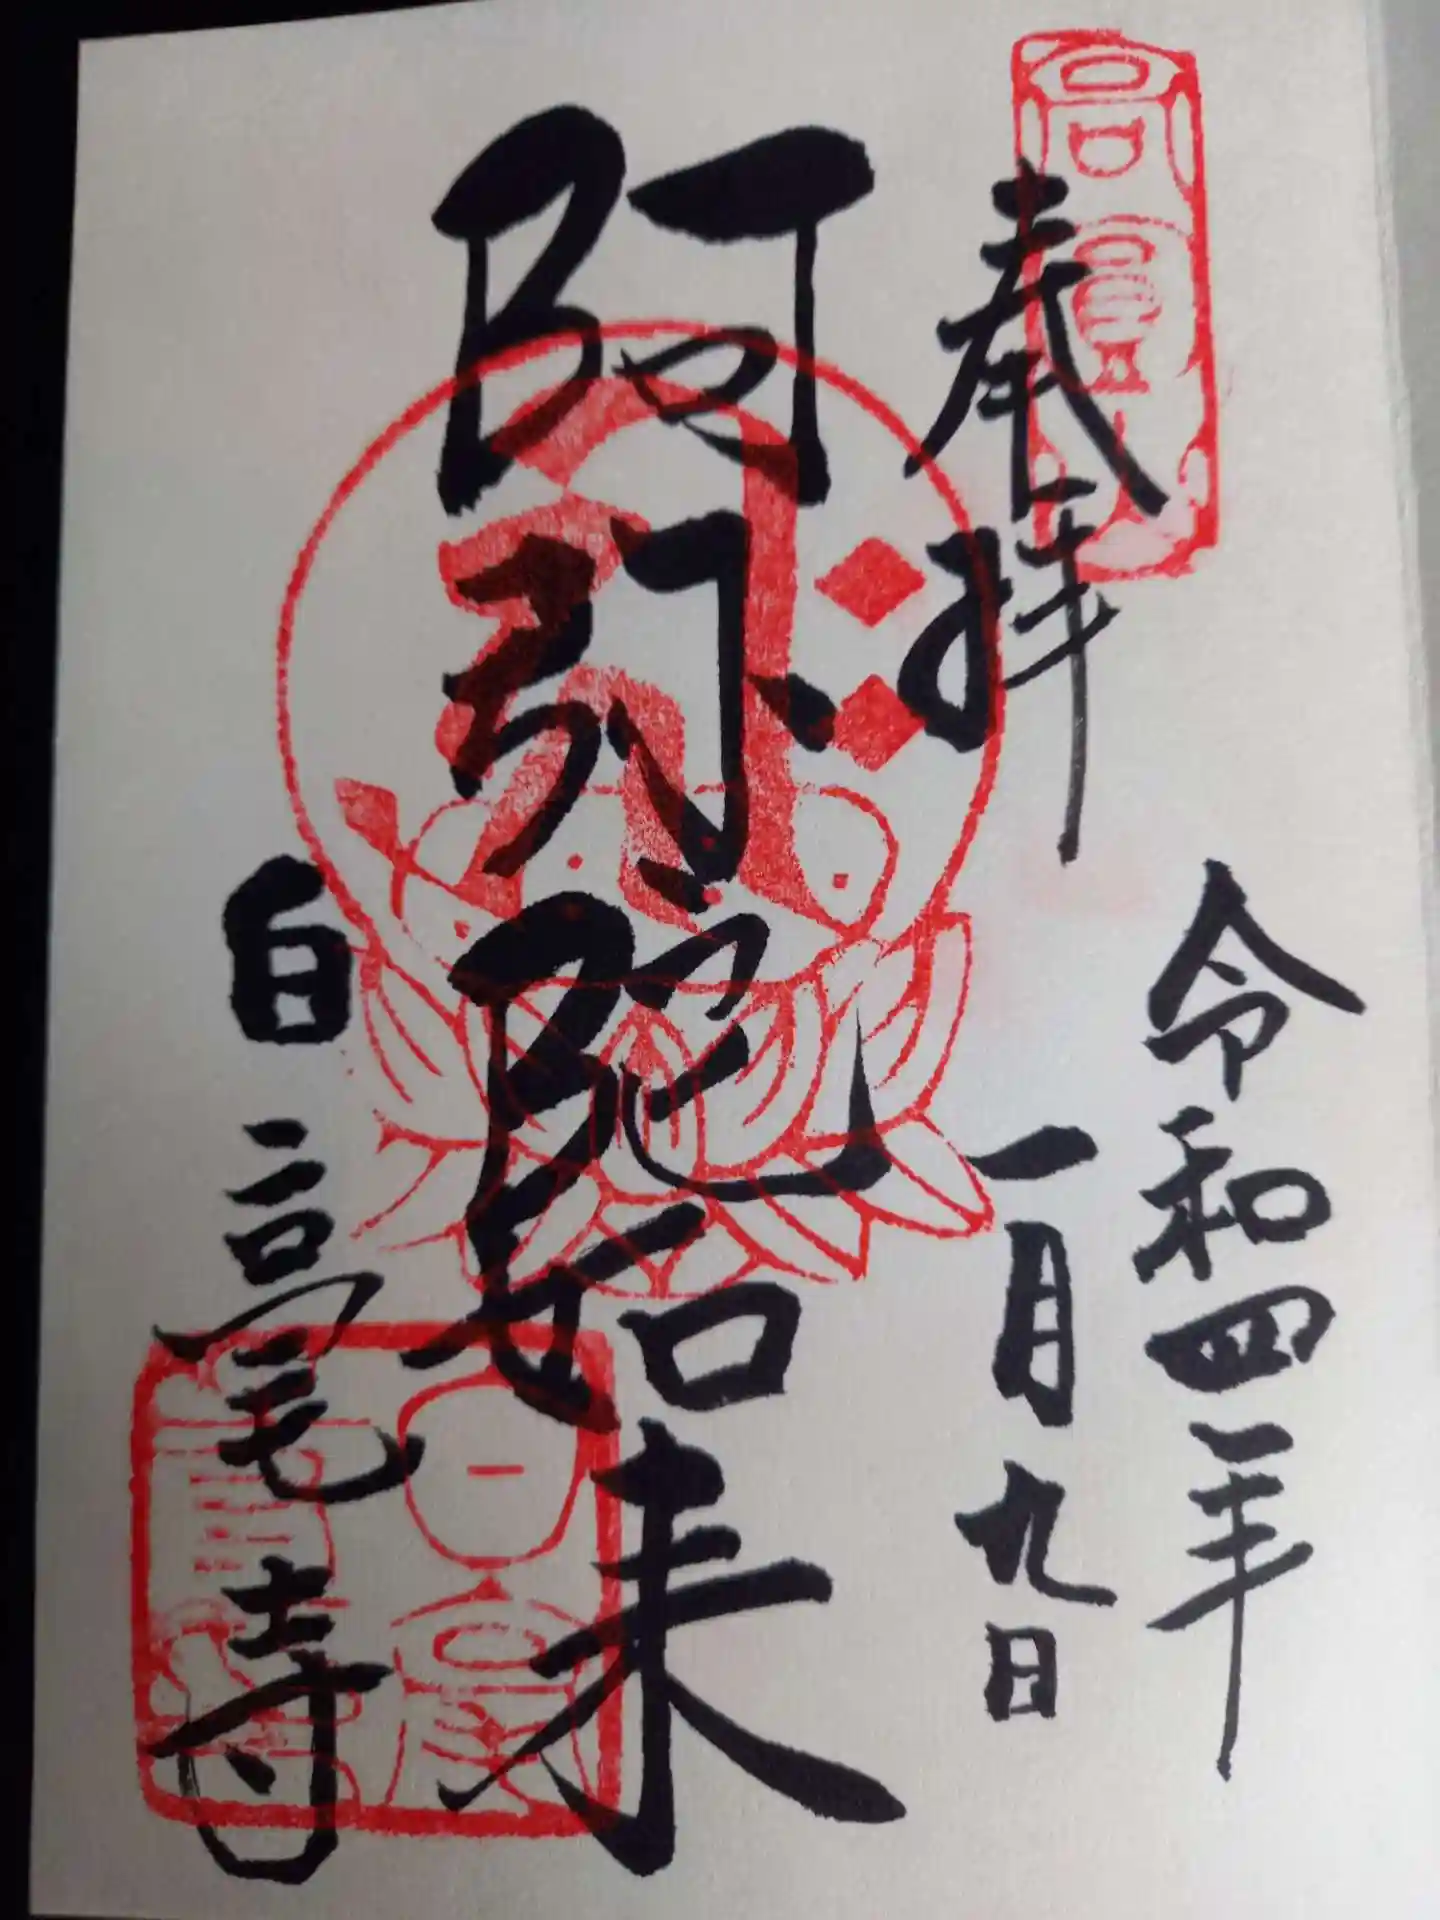 奉拝
令和四年
一月九日
阿弥陀如来
白毫寺